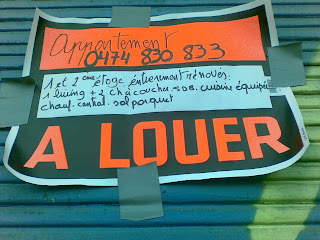 Appartement
0474 830 833
1 et 2 ème étage entièrement rénovés.
1 living + 2 ch à coucher - s.d.b. cuisine équipée
chauf. central. sol parquet
A LOUER